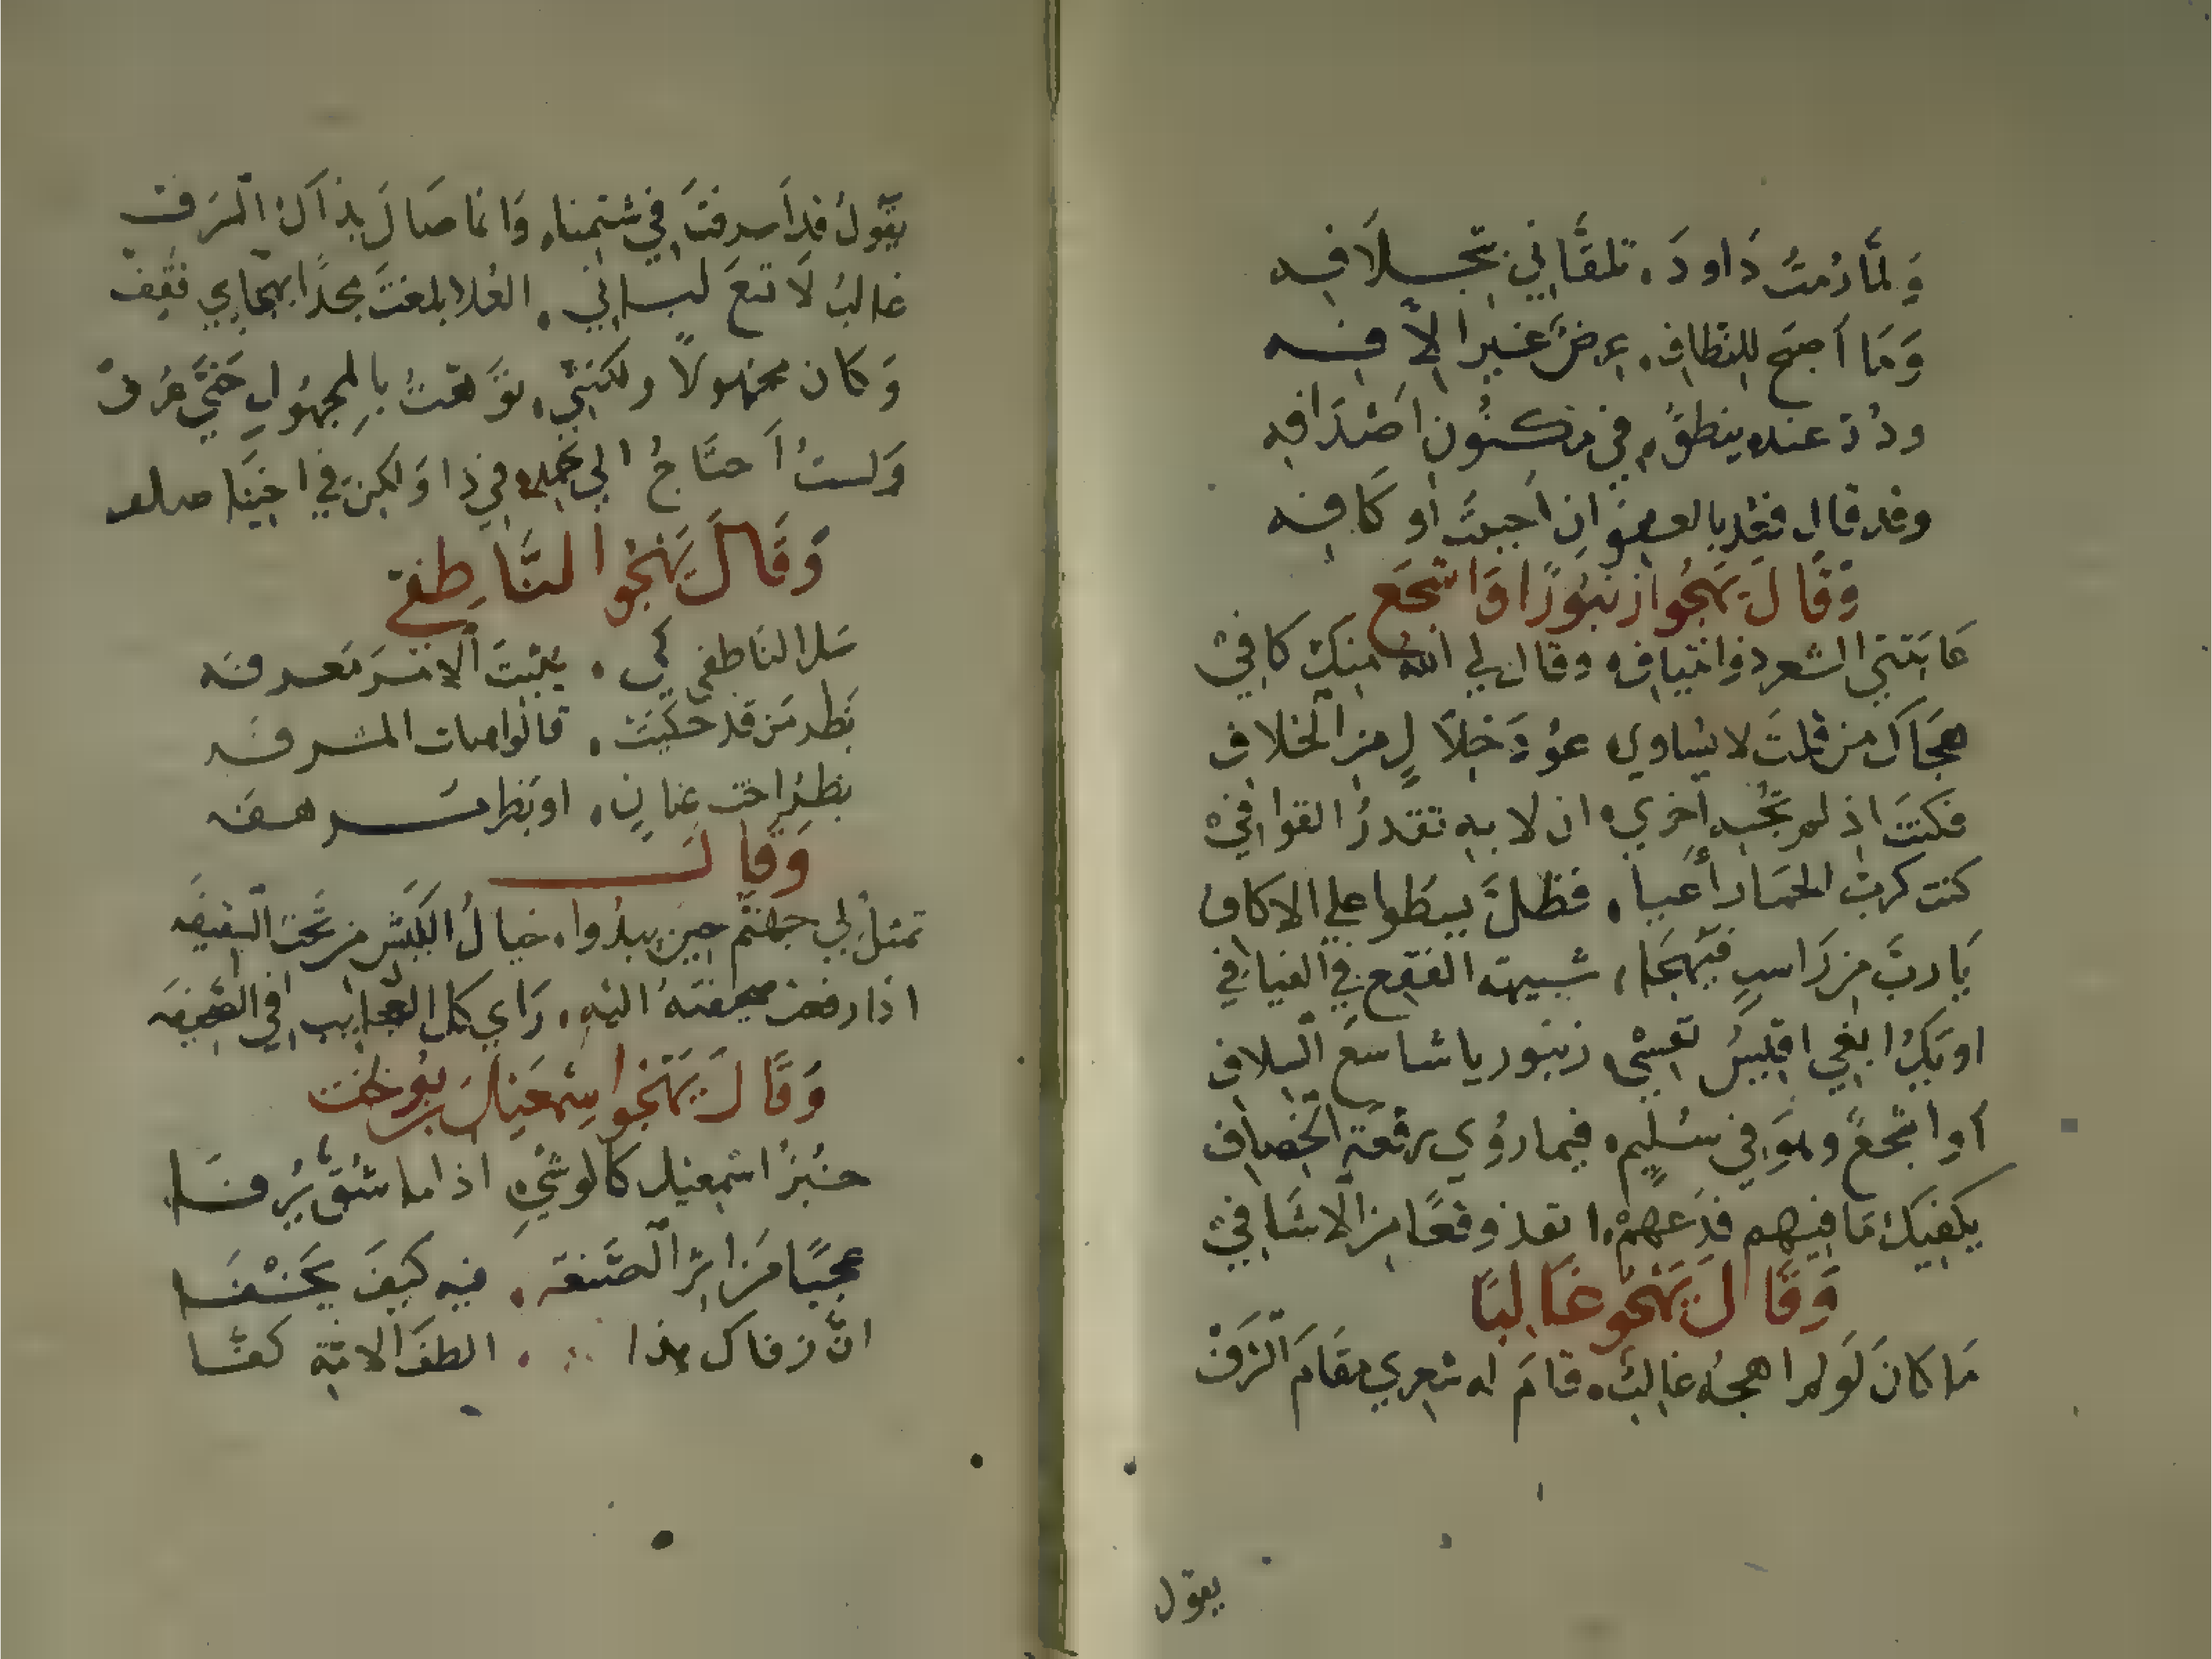 وَلمَّا رُمتُ دَاودَ ، تلقَّاني بتجـلافـه
وَمَا أصبَح للنطاف ، عرضٌ غير الافـه
ودُرّ عنده ينطقُ ، في مكنُون اصْدَافه
وقد قال فقد بالعفو ان احببتَ او كَافـه
وَقَالَ يَهجُوا زَنبُورًا وَاشجَع
عَاتبَتني الشعر ذو اختياف ، وقال لي اللهُ منكَ كافيْ
هجَاكَ من قلتَ لا يساوي ، عُودَ خلالٍ من الخلاف
فكنتَ اذ لم تجد اخري ، ان لا به تقدرُ القوافيْ
كنت كربّ الحمار أعيا ، فظلَّ يسطوا علي الاكاف
يَا ربَّ من رَاسه فيهجَا ، شبيهة الفقع في الفيافي
او بَكرُ ابغي اقيسُ نفسي ، زنبور يا شاسعَ التلاف
أو اشجعٌ وهوَ في سُليمٍ ، فيما رؤي رقعَة الخصاف
يكفيكَ مَا فيهم فدَعهمْ ، انعد وقعًا من الاشَافيْ
وَقَالَ يَهْجُو غَالبًا
مَا كانَ لَو لم اهجهُ غالبٌ ، قامَ له شعري مقَامَ الشرَفْ
يقول
يقُولُ قد أسرفتَ في شتمنا ، وَانما صَالَ بذاكَ السَرَفْ
غالبُ لَا تسعَ لبـانيْ ، العُلا بلغتَ مجدًا بهجاي فقِفْ
وَكان مجهولًا ولكنني ، نوَّهتُ بالمجهُول حَتّي عُرفْ
وَلستُ أحتَاجُ الي حَمده في ذا وَلكن في اخينا صلف
وَقَالَ يَهْجُوا النَّاطِفي
سَل الناطفي كي ، يثبتَ الامـرَ مَعـرفـَه
بَظر مَن قد حكيت ، قالوا صات المشـرفـَه
بظرُ اخت عنانٍ ، او بَظر مـرهـفَه
وَقَالَـــ
تمثلُ لي جهنمُ حينَ يبدُوا ، خيالُ الكَبش من تحتَ السقيفَه
اذا رفعت صحيفتهُ اليْهِ ، رَاي كل العجايب في الصحيفَه
وَقَالَ يَهْجُوا سمعَيلَ بن نوبخت
خـبزُ اسمعيل كالوشْيِ اذا ما شُقَّ يُرفـَا
عجبًا مَن اثر الصّنعَه ، فيه كيفَ يَخْـفـَـا
انّ رفاكَ هذا ، الطفَ الامَّة كفـَّـا